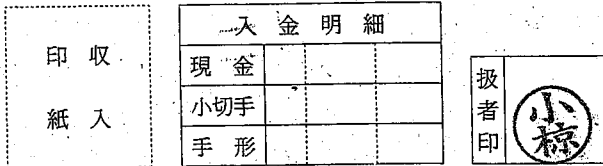 収入
印紙
入金明細
現金
小切手
手形
扱者印
小椋